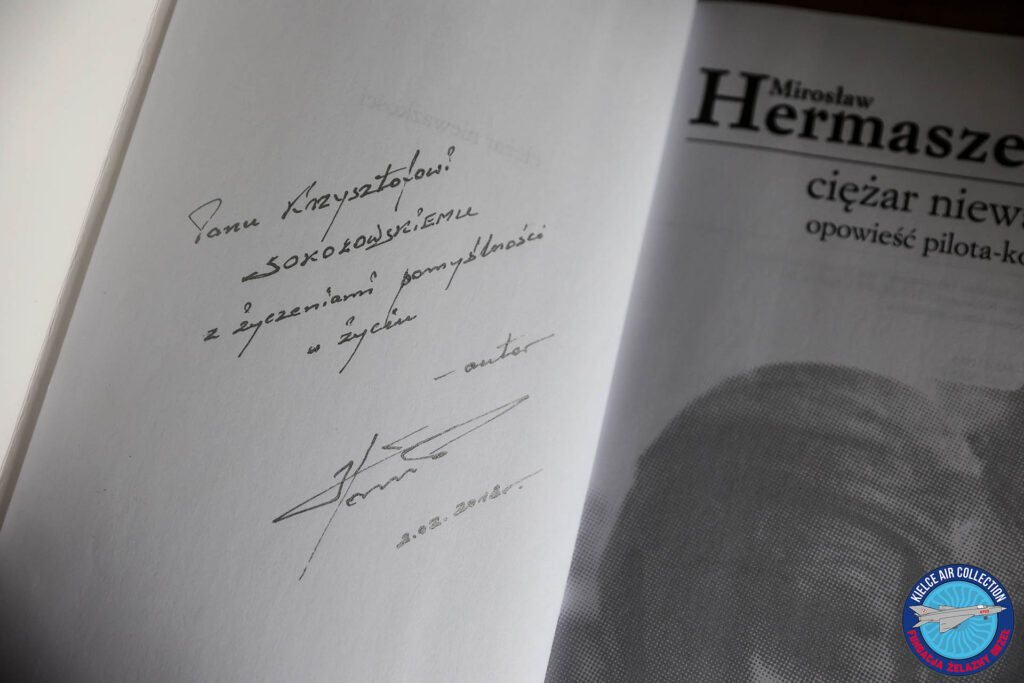 Panu Krzysztofowi
SOKOŁOWSKIEMU
z życzeniami pomyślności
w życiu
– autor
2.02.2018r.
Mirosław
Hermasze
ciężar niew
opowieść pilota-ko
KIELCE AIR COLLECTION
FUNDACJA ŻELAZNY ORZEŁ